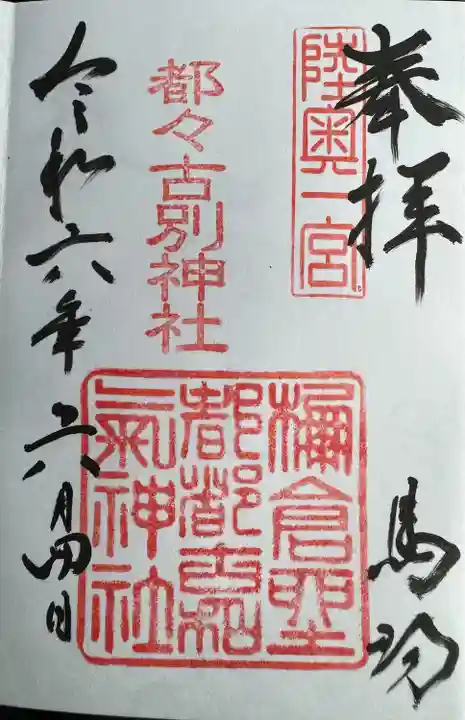 奉拝
陸奥一宮
馬場
都々古別神社
棚倉
都都古和
氣神社
令和六年六月四日